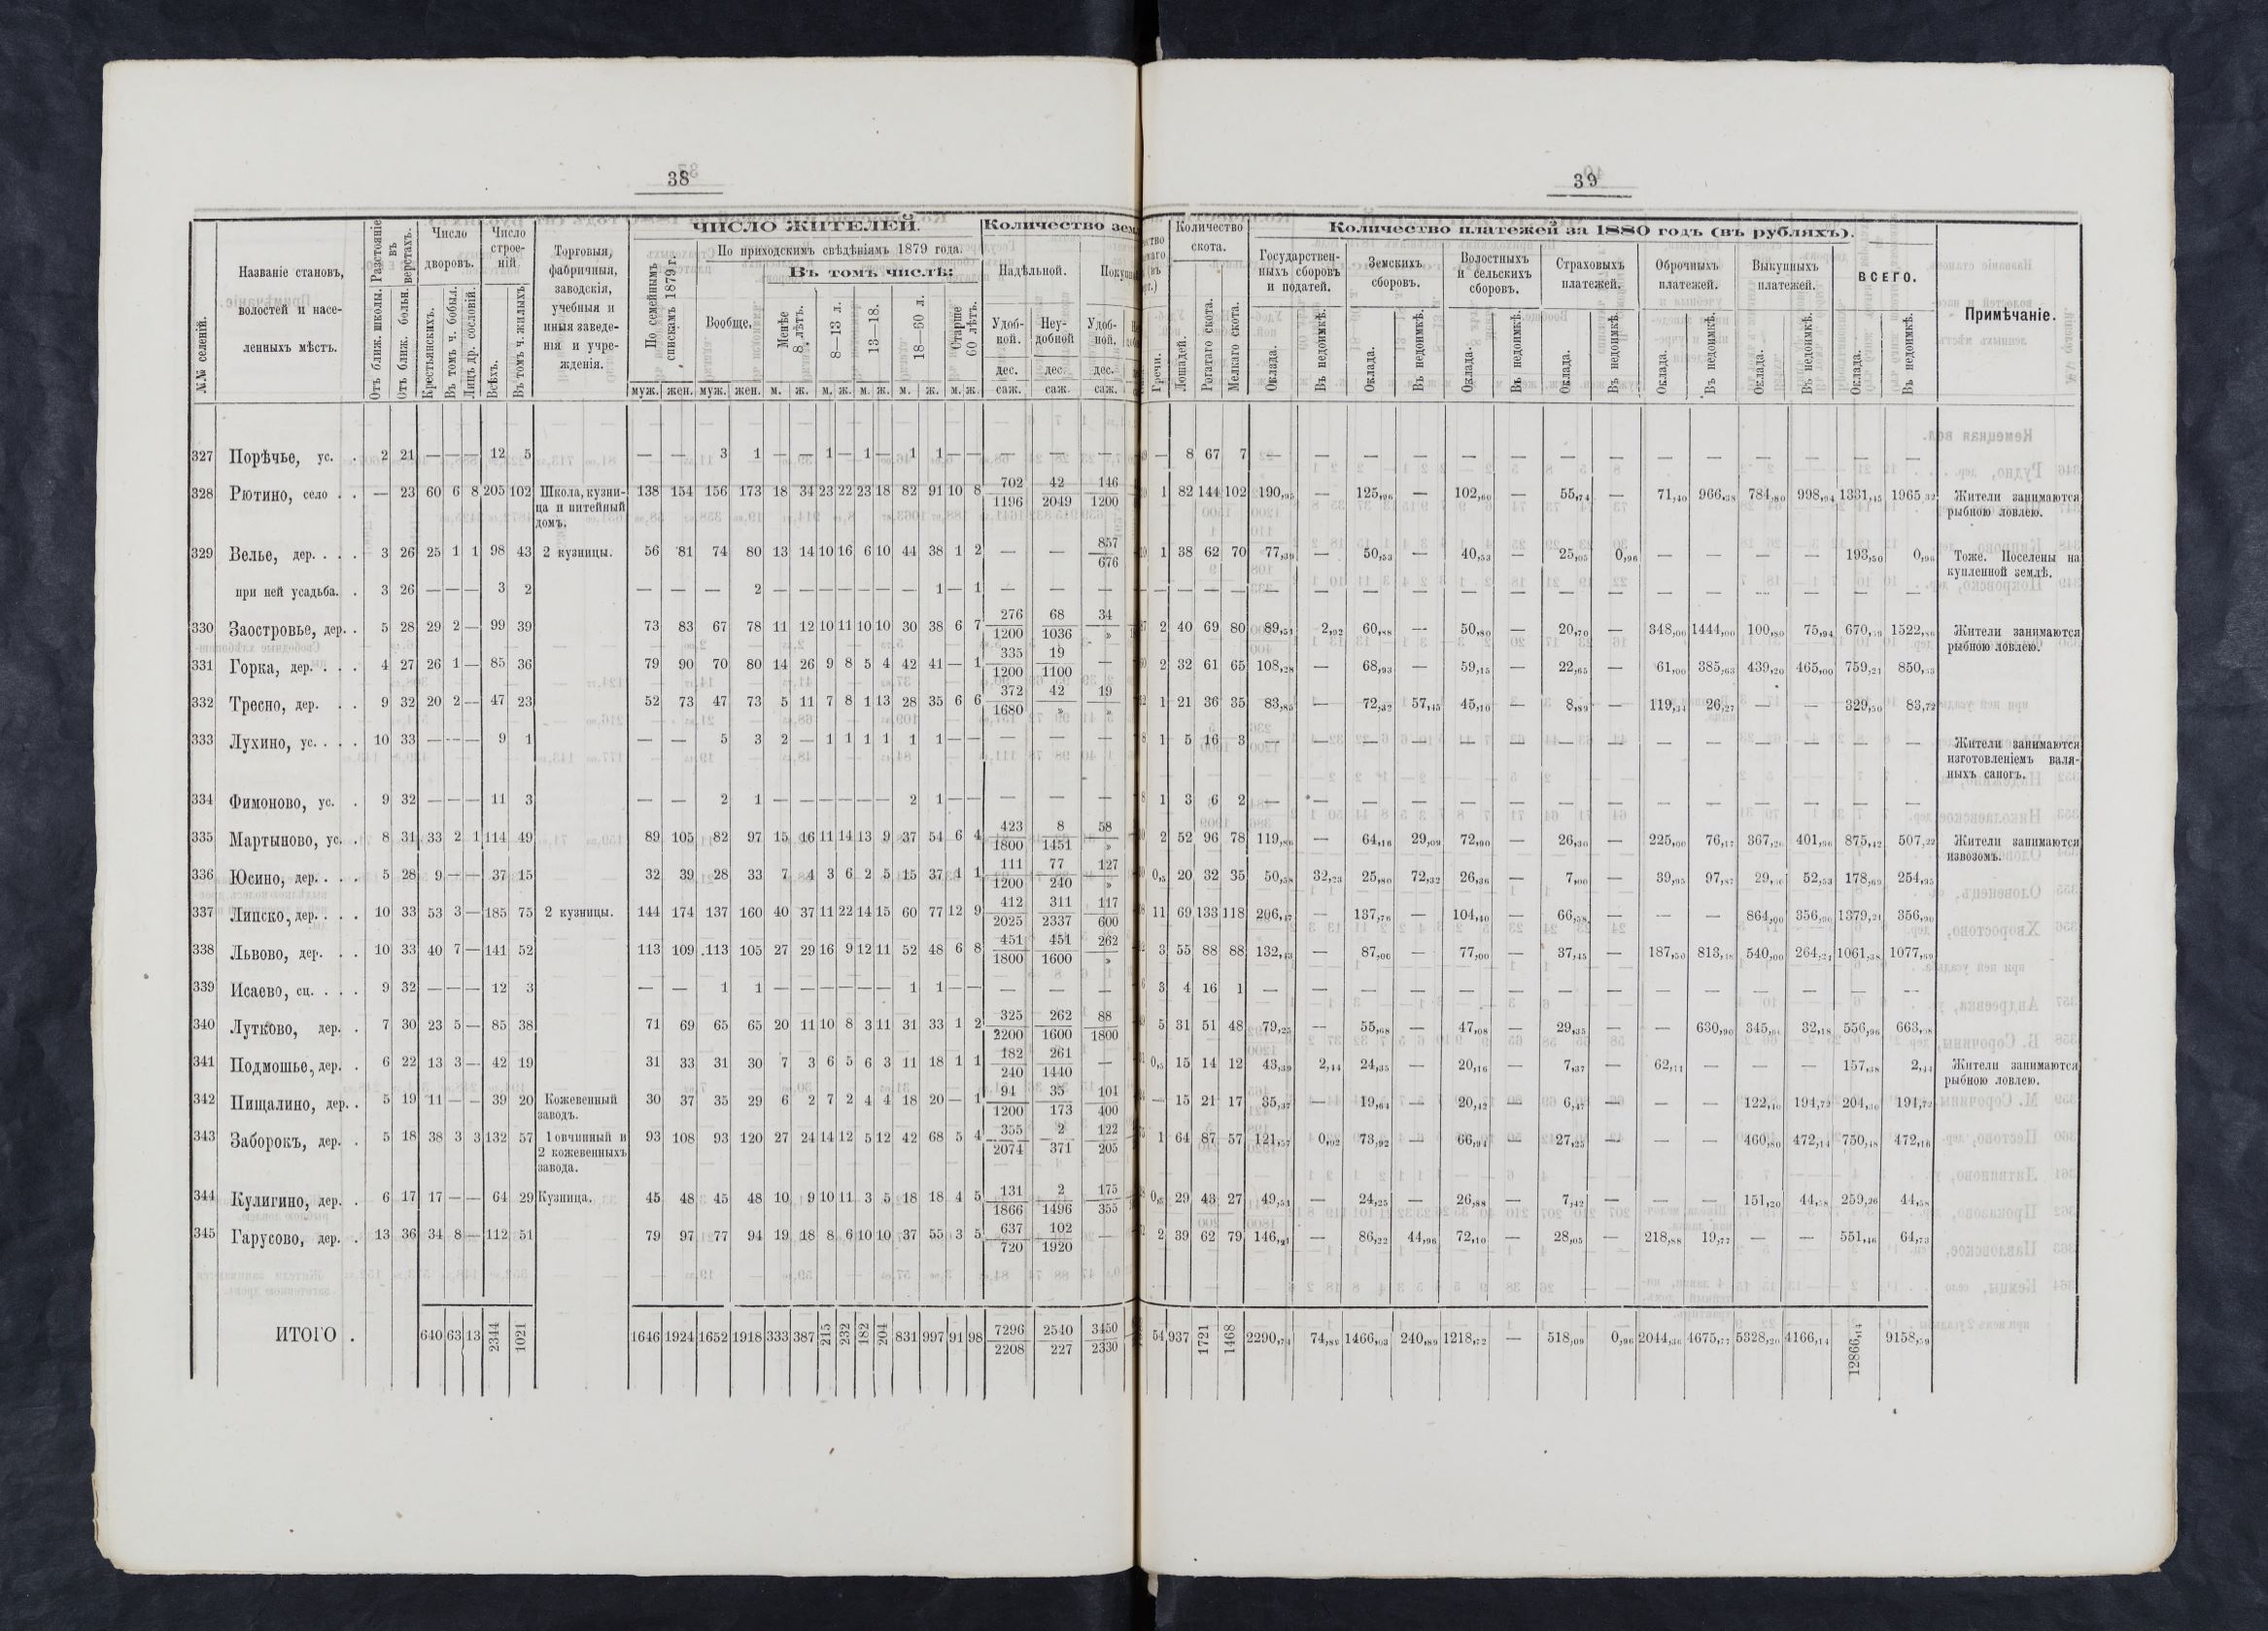 38
№№ селеній.
Названіе становъ, волостей и насе-
ленныхъ мѣстъ.
Разстояніе въ верстахъ.
Отъ ближ. школы.
Отъ ближ. больн.
Число дворовъ.
Крестьянскихъ.
Въ томъ ч. бобыл.
Лицъ др. сословій.
Число строе-
ній.
Всѣхъ.
Въ томъ ч. жилыхъ
Торговыя,
фабричныя,
заводскія,
учебныя и
иныя заведе-
нія и учре-
жденія.
ЧИСЛО ЖИТЕЛЕЙ.
По семейнымъ спискамъ 1879 г.
По приходскимъ свѣдѣніямъ 1879 года.
Вообще.
Въ томъ числѣ:
Менѣе 8 лѣтъ.
8—13 л.
13—18.
18—60 л.
Старше 60 лѣтъ.
муж. жен. муж. жен. м. ж. м. ж. м. ж. м. ж. м. ж.
Количество зем
Надѣльной.
Удоб-
ной.
Неу-
добной
Удоб-
ной.
дес. дес. дес.
саж. саж. саж.
327 Порѣчье, ус. . 2 21 — — — 12 5 — — 3 1 — — 1 — 1 — 1 1 — — — — —
328 Рютино, село . . — 23 60 6 8 205 102 Школа, кузни- 138 154 156 173 18 34 23 22 23 18 82 91 10 8 702/1196 42/2049 146/1200
ца и питейный
домъ.
329 Велье, дер. . . . 3 26 25 1 1 98 43 2 кузницы. 56 81 74 80 13 14 10 16 6 10 44 38 1 2 — — 857/676
при ней усадьба. . 3 26 — — — 3 2 — — — 2 — — — — — — — 1 — 1 — — —
330 Заостровье, дер. . 5 28 29 2 — 99 39 73 83 67 78 11 12 10 11 10 10 30 38 6 7 276/1200 68/1036 34/»
331 Горка, дер. . . . 4 27 26 1 — 85 36 79 90 70 80 14 26 9 8 5 4 42 41 — 1 335/1200 19/1100 —
332 Тресно, дер. . . 9 32 20 2 — 47 23 52 73 47 73 5 11 7 8 1 13 28 35 6 6 372/1680 42/» 19/»
333 Лухино, ус. . . . 10 33 — — — 9 1 — — 5 3 2 — 1 1 1 1 1 1 — — — — —
334 Фимоново, ус. . 9 32 — — — 11 3 — — 2 1 — — — — — — 2 1 — — — — —
335 Мартыново, ус. . 8 31 33 2 1 114 49 89 105 82 97 15 16 11 14 13 9 37 54 6 4 423/1800 8/1451 58/»
336 Юсино, дер. . . . 5 28 9 — — 37 15 32 39 28 33 7 4 3 6 2 5 15 37 1 1 111/1200 77/240 127/»
337 Липско, дер. . . . 10 33 53 3 — 185 75 2 кузницы. 144 174 137 160 40 37 11 22 14 15 60 77 12 9 412/2025 311/2337 117/600
338 Львово, дер. . . 10 33 40 7 — 141 52 113 109 113 105 27 29 16 9 12 11 52 48 6 8 451/1800 451/1600 262/»
339 Исаево, сц. . . . 9 32 — — — 12 3 — — 1 1 — — — — — — 1 1 — — — — —
340 Лутково, дер. . 7 30 23 5 — 85 38 71 69 65 65 20 11 10 8 3 11 31 33 1 2 325/2200 262/1600 88/1800
341 Подмошье, дер. . 6 22 13 3 — 42 19 31 33 31 30 7 3 6 5 6 3 11 18 1 1 182/240 261/1440 —
342 Пищалино, дер. . 5 19 11 — — 39 20 Кожевенный 30 37 35 29 6 2 7 2 4 4 18 20 — 1 94/1200 35/173 101/400
заводъ.
343 Заборокъ, дер. . 5 18 38 3 3 132 57 1 овчинный и 93 108 93 120 27 24 14 12 5 12 42 68 5 4 355/2074 2/371 122/205
2 кожевенныхъ
завода.
344 Кулигино, дер. . 6 17 17 — — 64 29 Кузница. 45 48 45 48 10 9 10 11 3 5 18 18 4 5 131/1866 2/1496 175/355
345 Гарусово, дер. . 13 36 34 8 — 112 51 79 97 77 94 19 18 8 6 10 10 37 55 3 5 637/720 102/1920 —
ИТОГО . 640 63 13 2344 1021 1646 1924 1652 1918 333 387 215 232 182 204 831 997 91 98 7296/2208 2540/227 3450/2330
39
Гречи.
Количество
скота.
Лошадей.
Рогатаго скота.
Мелкаго скота.
Количество платежей за 1880 годъ (въ рубляхъ).
Государствен-
ныхъ сборовъ
и податей.
Земскихъ
сборовъ.
Волостныхъ
и сельскихъ
сборовъ.
Страховыхъ
платежей.
Оброчныхъ
платежей.
Выкупныхъ
платежей.
ВСЕГО.
Оклада. Въ недоимкѣ. Оклада. Въ недоимкѣ. Оклада. Въ недоимкѣ. Оклада. Въ недоимкѣ. Оклада. Въ недоимкѣ. Оклада. Въ недоимкѣ. Оклада. Въ недоимкѣ.
Примѣчаніе.
— 8 67 7 — — — — — — — — — — — — — —
1 82 144 102 190,95 — 125,96 — 102,60 — 55,74 — 71,40 966,38 784,80 998,94 1331,45 1965,32 Жители занимаются
рыбною ловлею.
1 38 62 70 77,39 — 50,53 — 40,53 — 25,05 0,96 — — — — 193,50 0,96 Тоже. Поселены на
купленной землѣ.
— — — — — — — — — — — — — — — — — —
2 40 69 80 89,51 2,92 60,88 — 50,80 — 20,70 — 348,00 1444,00 100,80 75,94 670,59 1522,86 Жители занимаются
рыбною ловлею.
2 32 61 65 108,28 — 68,93 — 59,15 — 22,65 — 61,00 385,63 439,20 465,00 759,21 850,63
1 21 36 35 83,85 — 72,32 57,45 45,10 — 8,89 — 119,34 26,27 — — 329,50 83,72
1 5 16 3 — — — — — — — — — — — — — — Жители занимаются
изготовленіемъ валя-
ныхъ сапогъ.
1 3 6 2 — — — — — — — — — — — — — —
2 52 96 78 119,86 — 64,16 29,09 72,90 — 26,30 — 225,00 76,17 367,20 401,96 875,42 507,22 Жители занимаются
извозомъ.
0,5 20 32 35 50,58 32,23 25,80 72,32 26,36 — 7,00 — 39,95 97,87 29,00 52,53 178,69 254,95
11 69 133 118 206,47 — 137,76 — 104,40 — 66,58 — — — 864,00 356,90 1379,21 356,90
3 55 88 88 132,43 — 87,00 — 77,00 — 37,45 — 187,50 813,48 540,00 264,21 1061,38 1077,69
3 4 16 1 — — — — — — — — — — — — — —
5 31 51 48 79,25 — 55,68 — 47,08 — 29,35 — — 630,90 345,60 32,18 556,96 663,08
0,5 15 14 12 43,39 2,44 24,35 — 20,16 — 7,37 — 62,11 — — — 157,38 2,44 Жители занимаются
рыбною ловлею.
— 15 21 17 35,37 — 19,64 — 20,42 — 6,47 — — — 122,40 194,72 204,30 194,72
1 64 87 57 121,57 0,02 73,92 — 66,94 — 27,25 — — — 460,80 472,14 750,48 472,16
29 43 27 49,51 — 24,25 — 26,88 — 7,42 — — — 151,20 44,58 259,26 44,58
2 39 62 79 146,21 — 86,22 44,96 72,10 — 28,05 — 218,88 19,77 — — 551,46 64,73
54 937 1721 1468 2290,74 74,89 1466,03 240,89 1218,72 — 518,09 0,96 2044,36 4675,77 5328,20 4166,14 12866,14 9158,59